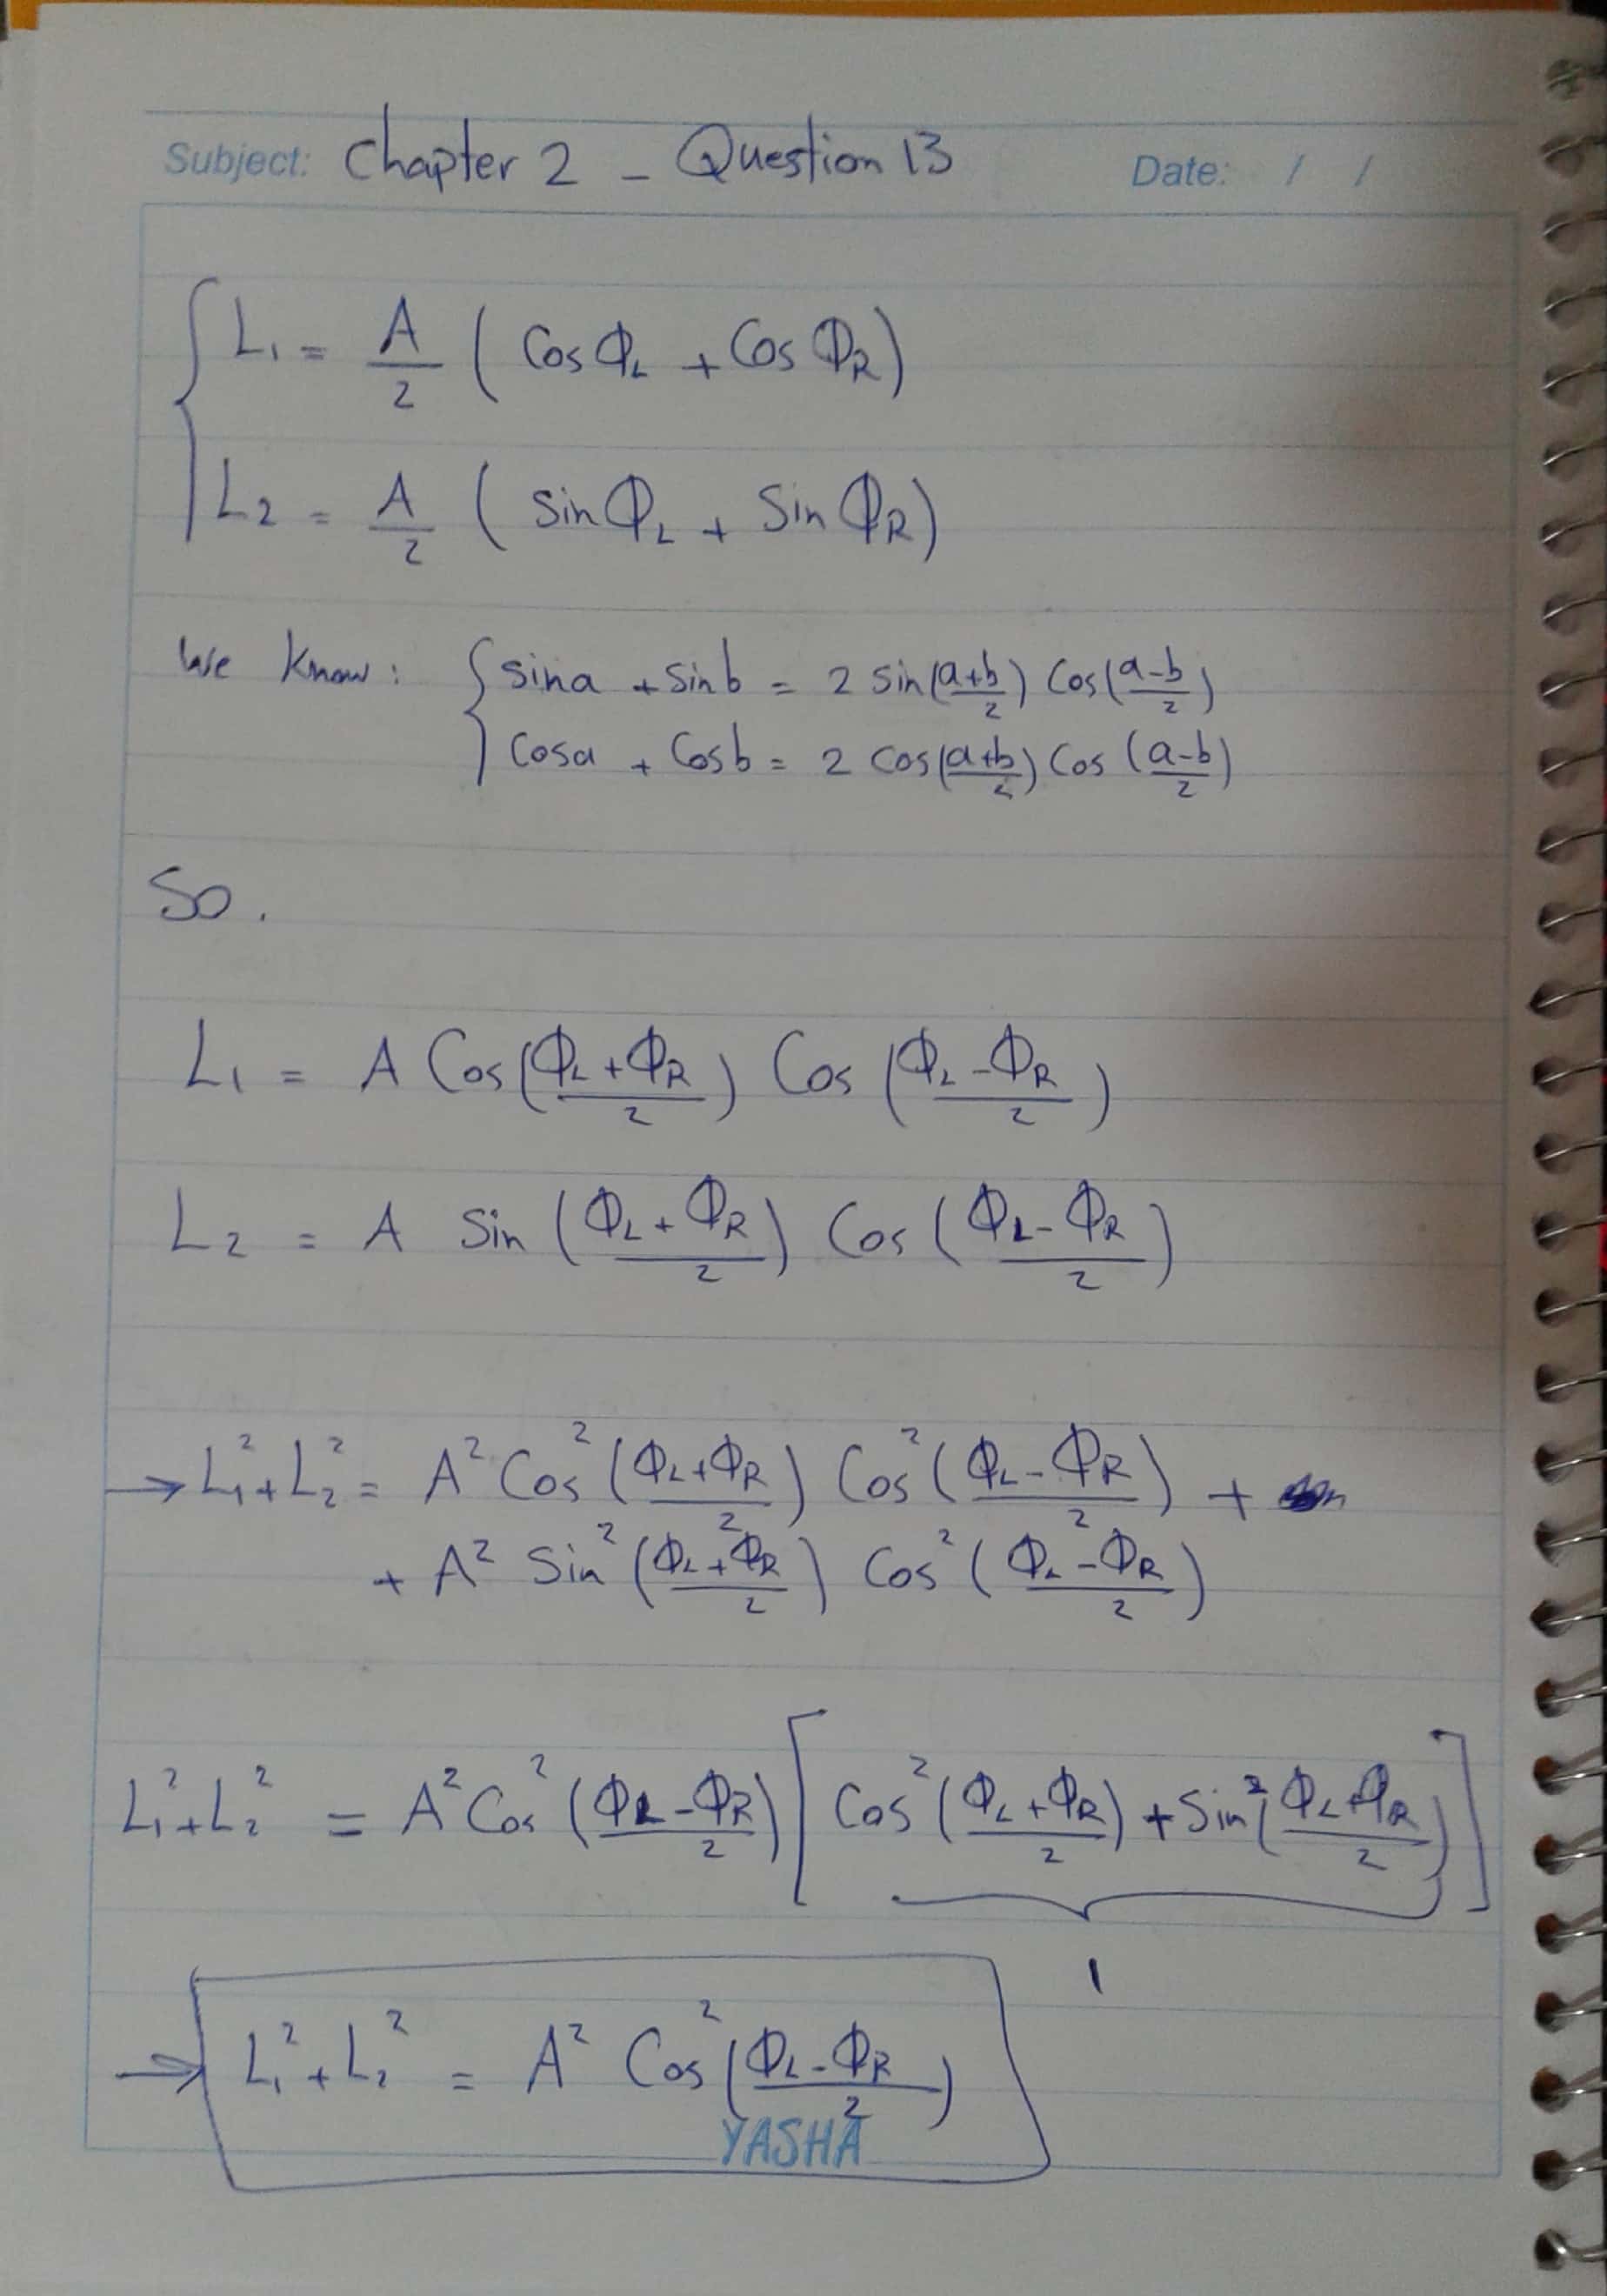 Subject: Chapter 2 - Question 13 Date: / /
L₁ = A/2 ( Cos Φ_L + Cos Φ_R )
L₂ = A/2 ( Sin Φ_L + Sin Φ_R )
We Know: { sin a + sin b = 2 sin(a+b/2) Cos(a-b/2)
Cos a + Cos b = 2 Cos(a+b/2) Cos (a-b/2)
So.
L₁ = A Cos(Φ_L + Φ_R/2) Cos (Φ_L - Φ_R/2)
L₂ = A Sin (Φ_L + Φ_R/2) Cos (Φ_L - Φ_R/2)
→ L₁² + L₂² = A² Cos² (Φ_L + Φ_R/2) Cos² (Φ_L - Φ_R/2) +
+ A² Sin² (Φ_L + Φ_R/2) Cos² (Φ_L - Φ_R/2)
L₁² + L₂² = A² Cos² (Φ_L - Φ_R/2) [ Cos² (Φ_L + Φ_R/2) + Sin² (Φ_L + Φ_R/2) ]
1
→ L₁² + L₂² = A² Cos² (Φ_L - Φ_R/2)
YASHA